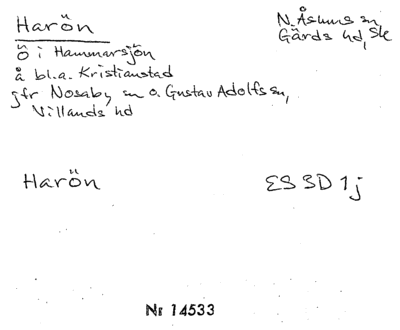 Harön
N. Åsums sn,
Gärds hd, Ske
ö i Hammarsjön
å bl.a. Kristianstad
jfr Nosaby sn o. Gustav Adolfs sn,
Villands hd
Harön
ES 3D 1j
Nr 14533